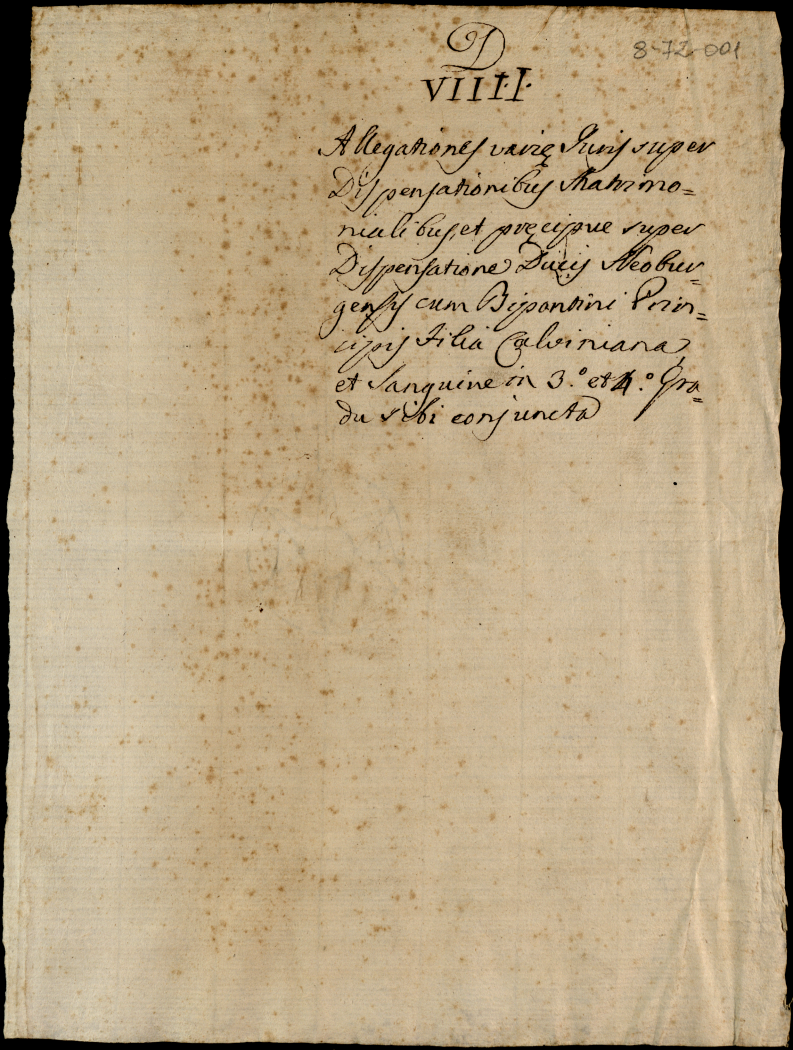 D
8-72-001
VIIII.I.
Allegationes varię Juris super
Dispensationibus Matrimo=
nialibus, et pręcipue super
Dispensatione Ducis Neobur=
gensis cum Bipontini Prin=
cipis Filia Calviniana,
et Sanguine in 3.º et 4.º Gra=
du sibi conjuncta